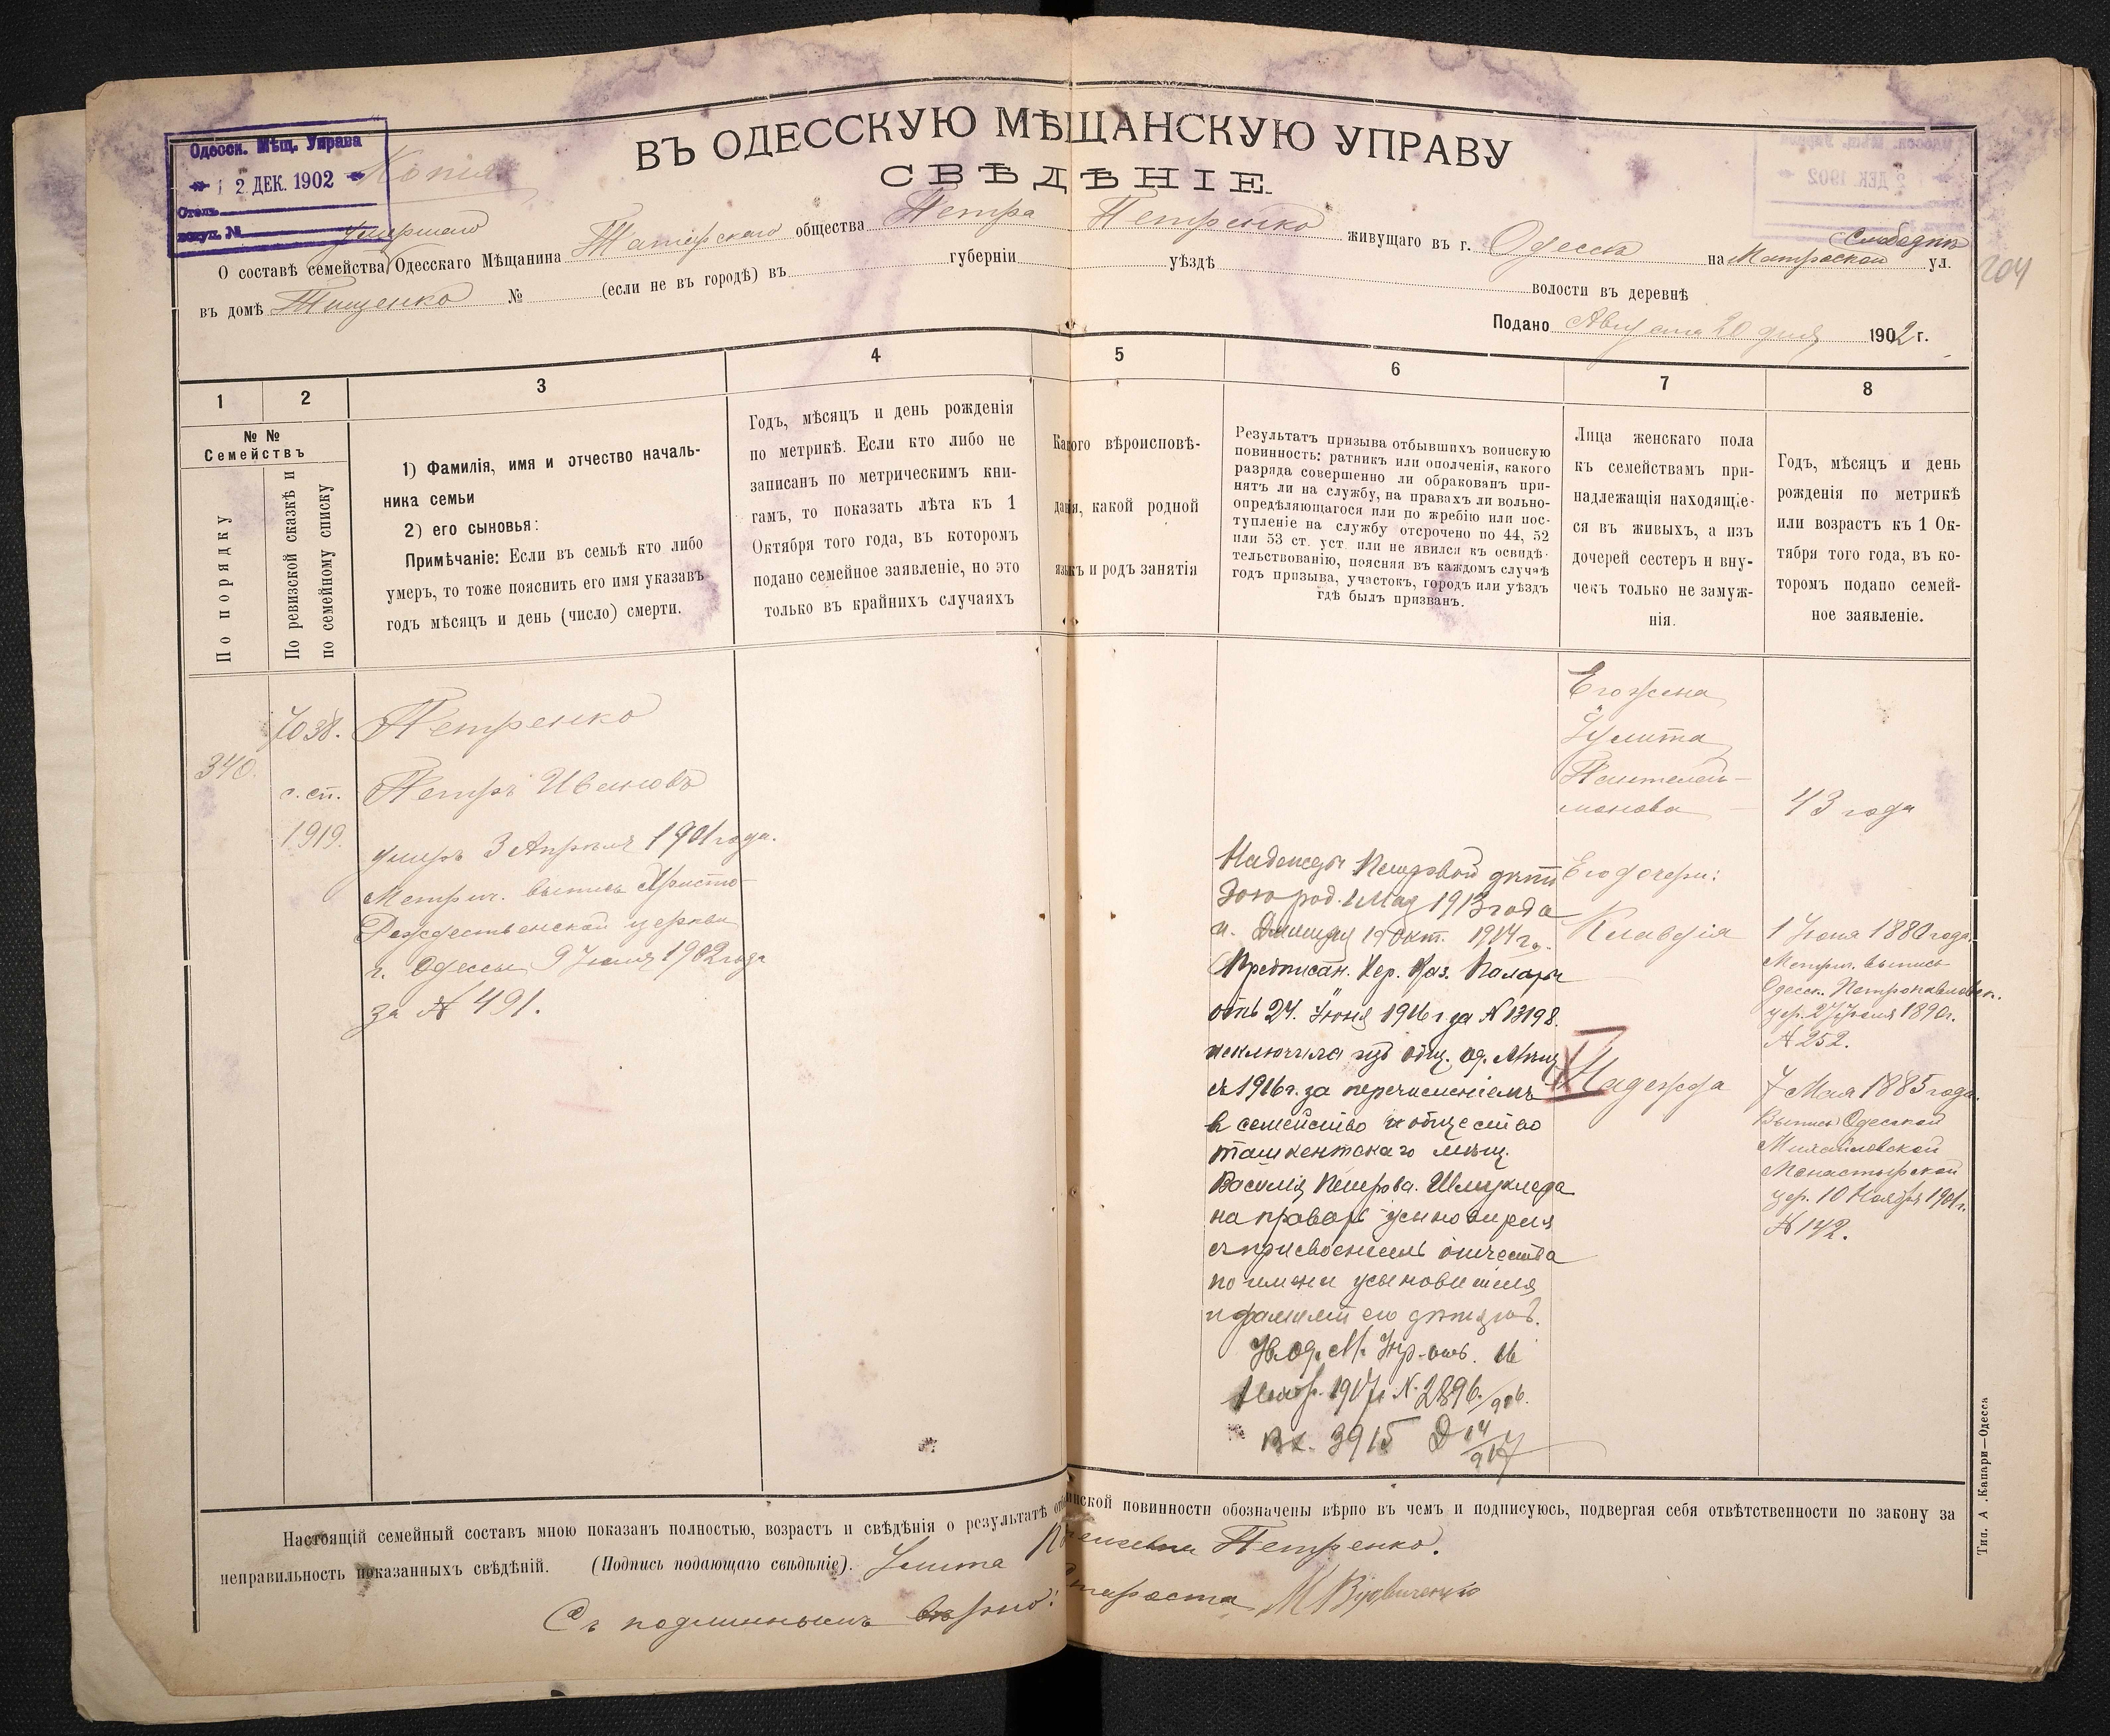 ВЪ ОДЕССКУЮ МѢЩАНСКУЮ УПРАВУ
СВѢДѢНІЕ.
Одесск. Мѣщ. Управа
2 ДЕК. 1902
Столъ
вход. №
Копія
204
умершаго
О составѣ семейства Одесскаго Мѣщанина Татарскаго общества Петра Петренко живущаго въ г. Одессѣ на Матросской Слободкѣ ул.
въ домѣ Тищенко № (если не въ городѣ) въ губерніи уѣздѣ волости въ деревнѣ
Подано Августа 20 дня 1902 г.
1 2 3 4 5 6 7 8
№ №
Семействъ
По порядку
По ревизской сказкѣ и
по семейному списку
1) Фамилія, имя и отчество началь-
ника семьи
2) его сыновья:
Примѣчаніе: Если въ семьѣ кто либо
умеръ, то тоже пояснить его имя указавъ
годъ мѣсяцъ и день (число) смерти.
Годъ, мѣсяцъ и день рожденія
по метрикѣ. Если кто либо не
записанъ по метрическимъ кни-
гамъ, то показать лѣта къ 1
Октября того года, въ которомъ
подано семейное заявленіе, но это
только въ крайнихъ случаяхъ
Какого вѣроисповѣ-
данія, какой родной
языкъ и родъ занятія
Результатъ призыва отбывшихъ воинскую
повинность: ратникъ или ополченія, какого
разряда совершенно ли обракованъ при-
нятъ ли на службу, на правахъ ли вольно-
опредѣляющагося или по жребію или пос-
тупленіе на службу отсрочено по 44, 52
или 53 ст. уст. или не явился къ освидѣ-
тельствованію, поясняя въ каждомъ случаѣ
годъ призыва, участокъ, городъ или уѣздъ
гдѣ былъ призванъ.
Лица женскаго пола
къ семействамъ при-
надлежащія находящіе-
ся въ живыхъ, а изъ
дочерей сестеръ и вну-
чекъ только не замуж-
нія.
Годъ, мѣсяцъ и день
рожденія по метрикѣ
или возрастъ къ 1 Ок-
тября того года, въ ко-
торомъ подано семей-
ное заявленіе.
340.
7038.
с. сп.
1919.
Петренко
Петръ Ивановъ
умеръ 3 Апрѣля 1901 года.
Метрич. выпись Христо-
Рождественской церкви
г. Одессы 9 Іюля 1902 года
за № 491.
Надежды Петровой дѣти
род. 1 Мая 1913 года
и 19 окт. 1914 г.
Предписан. Хер. Каз. Палаты
отъ 24. Іюня 1916 г за № 13198.
исключила изъ общ. Од. Мѣщ
съ 1916 г. за перечисленіемъ
въ семейство и общество
ташкентскаго мѣщ.
Василія Петрова.
на правахъ усыновленія
съ присвоеніемъ отчества
по имени усыновителя
и фамиліи его дѣтямъ.
Од. М. Упр. отъ. 16
1917 г. № 2896/916.
Вх. 3915 Д 14/917
Его жена
Іулита
Пантелей-
монова
43 года
Его дочери:
Клавдія
1 Іюня 1880 года.
Метрич. выпись
Одесск. Петропавловск.
цер. 27 Іюля 1890 г.
№ 252.
Надежда
7 Мая 1885 года.
Выпись Одесской
Михайловской
Монастырской
цер. 10 Ноября 1901 г.
№ 142.
Настоящій семейный составъ мною показанъ полностью, возрастъ и свѣдѣнія о результатѣ воинской повинности обозначены вѣрно въ чемъ и подписуюсь, подвергая себя отвѣтственности по закону за
неправильность показанныхъ свѣдѣній. (Подпись подающаго свѣдѣніе). Улита Петренко.
Съ подлиннымъ вѣрно: Староста М
Тип. А. Капари—Одесса